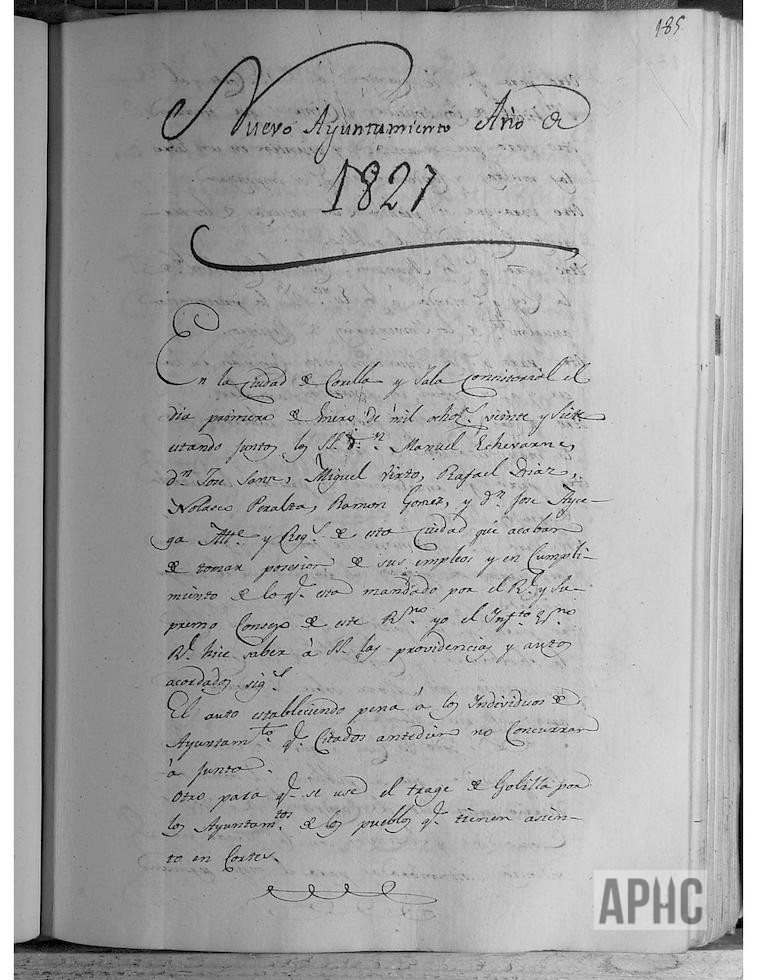 185
Nuevo Ayuntamiento Año de
1827
En la Ciudad de Corella y Sala Consistorial el
dia primero de Enero de mil ochoz.s veinte y Siete
estando juntos los SS. D.n Manuel Echevarne,
d.n Jose Sanz, Miguel Virto, Rafael Diaz,
Nolasco Peralta, Ramon Gomez, y d.n Jose Ayce-
ga Alt.e y Reg.s de esta Ciudad que acaban
de tomar posesion de sus empleos y en Cumpli-
miento de lo q.e esta mandado por el R.l y Su-
premo Consejo de este R.no yo el Inf.to Es.no
R.l hice saber à SS. las providencias y autos
acordados sig.s
El auto estableciendo pena à los Individuos de
Ayuntam.to q.e Citados antediem no Concurran
à junta.
Otro para q.e se use el trage de Golilla por
los Ayuntam.tos de los pueblos q.e tienen asien-
to en Cortes.
APHC